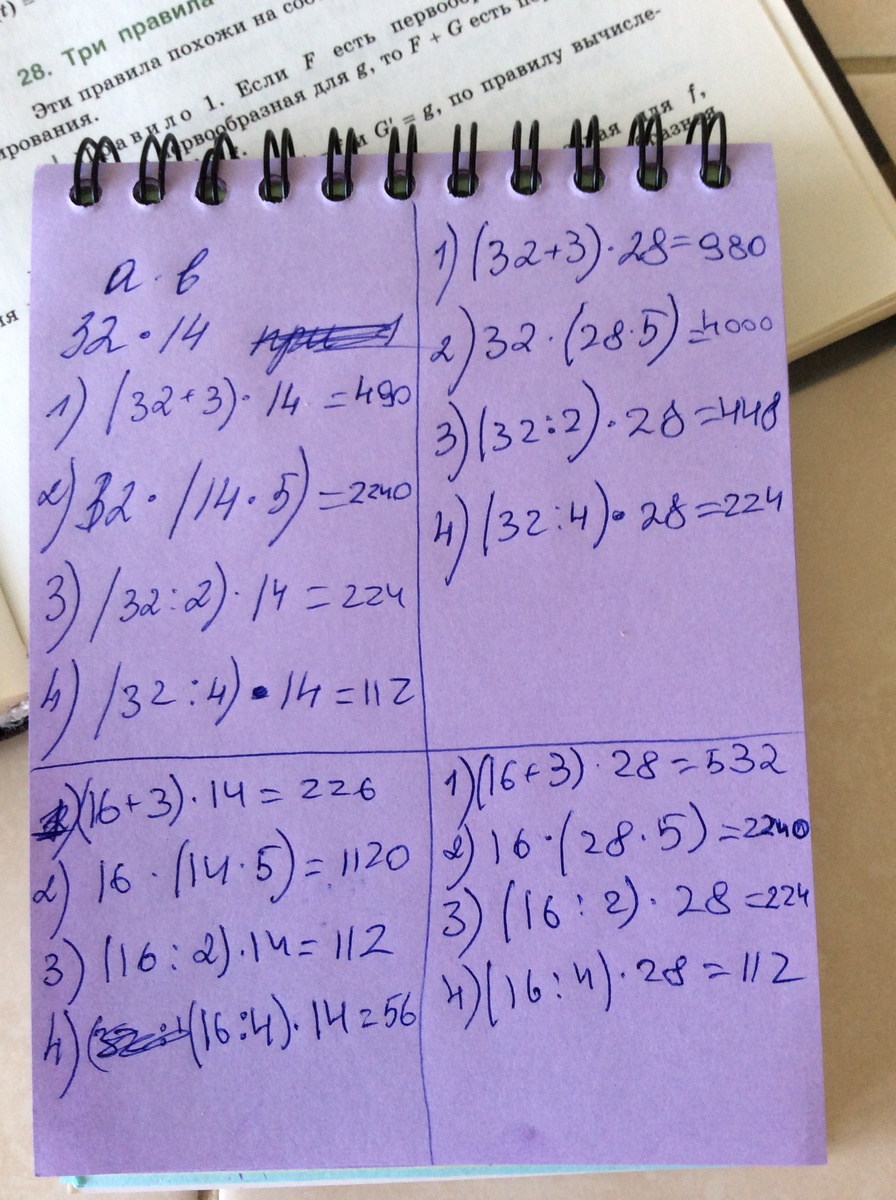 28. Три правила
Эти правила похожи на соо
ирования.
равило 1. Если F есть первооб
рвообразная для g, то F + G есть пе
G' = g, по правилу вычисле-
для f,
a · в
32 · 14
1) (32+3) · 14 = 490
2) 32 · (14 · 5) = 2240
3) (32 : 2) · 14 = 224
4) (32 : 4) · 14 = 112
1) (32+3) · 28 = 980
2) 32 · (28 · 5) = 4000
3) (32 : 2) · 28 = 448
4) (32 : 4) · 28 = 224
1) (16+3) · 14 = 226
2) 16 · (14 · 5) = 1120
3) (16 : 2) · 14 = 112
4) (16 : 4) · 14 = 56
1) (16+3) · 28 = 532
2) 16 · (28 · 5) = 2240
3) (16 : 2) · 28 = 224
4) (16 : 4) · 28 = 112